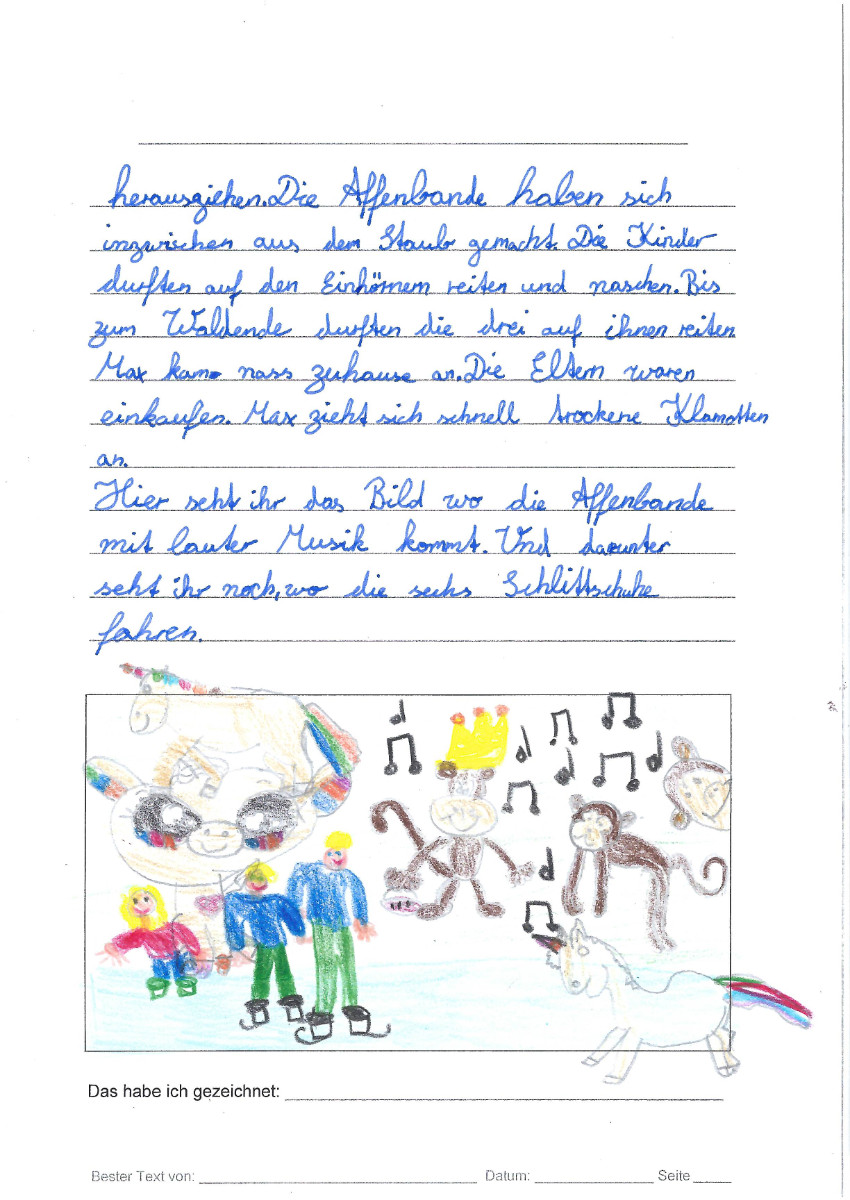 herausziehen. Die Affenbande haben sich
inzwischen aus dem Staub gemacht. Die Kinder
durften auf den Einhörnern reiten und naschen. Bis
zum Waldende durften die drei auf ihnen reiten
Max kam nass zuhause an. Die Eltern waren
einkaufen. Max zieht sich schnell trockene Klamotten
an.
Hier seht ihr das Bild wo die Affenbande
mit lauter Musik kommt. Und darunter
seht ihr noch, wo die sechs Schlittschuhe
fahren.
Das habe ich gezeichnet:
Bester Text von: Datum: Seite